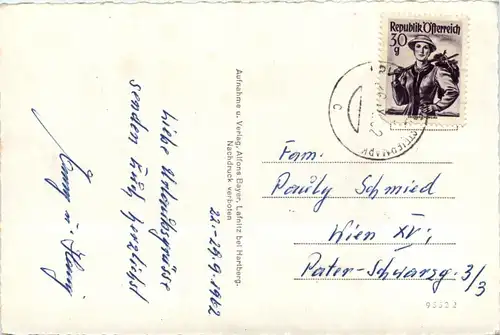 22.-29.9.1962
Liebe Urlaubsgrüsse
senden Euch herzlichst
Aufnahme u. Verlag, Alfons Bayer, Lafnitz bei Hartberg.
Nachdruck verboten
Republik Österreich
30
g
STEIERMARK
C
Fam.
Pauly Schmied
Wien XV;
Pater-Schwarzg. 3/3